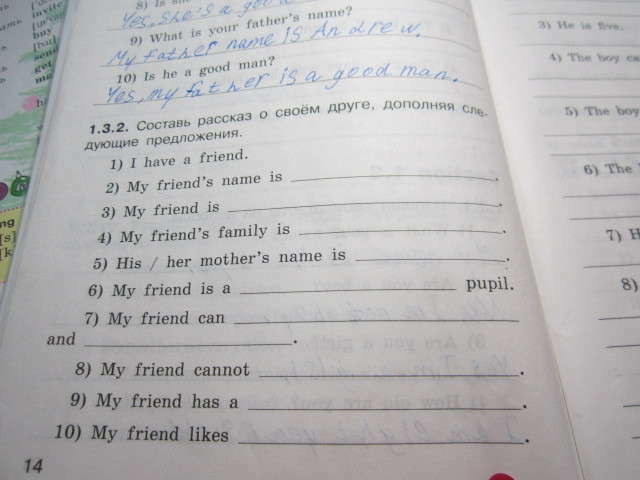 8) Is
Yes, she's a good
9) What is your father's name?
My father name is Andrew.
10) Is he a good man?
Yes, my father is a good man.
1.3.2. Составь рассказ о своём друге, дополняя сле-
дующие предложения.
1) I have a friend.
2) My friend's name is ____________.
3) My friend is ____________.
4) My friend's family is ____________.
5) His / her mother's name is ____________.
6) My friend is a ____________ pupil.
7) My friend can ____________
and ____________.
8) My friend cannot ____________.
9) My friend has a ____________.
10) My friend likes ____________.
14
3) He is five.
4) The boy
5) The boy
6) The
7)
8)